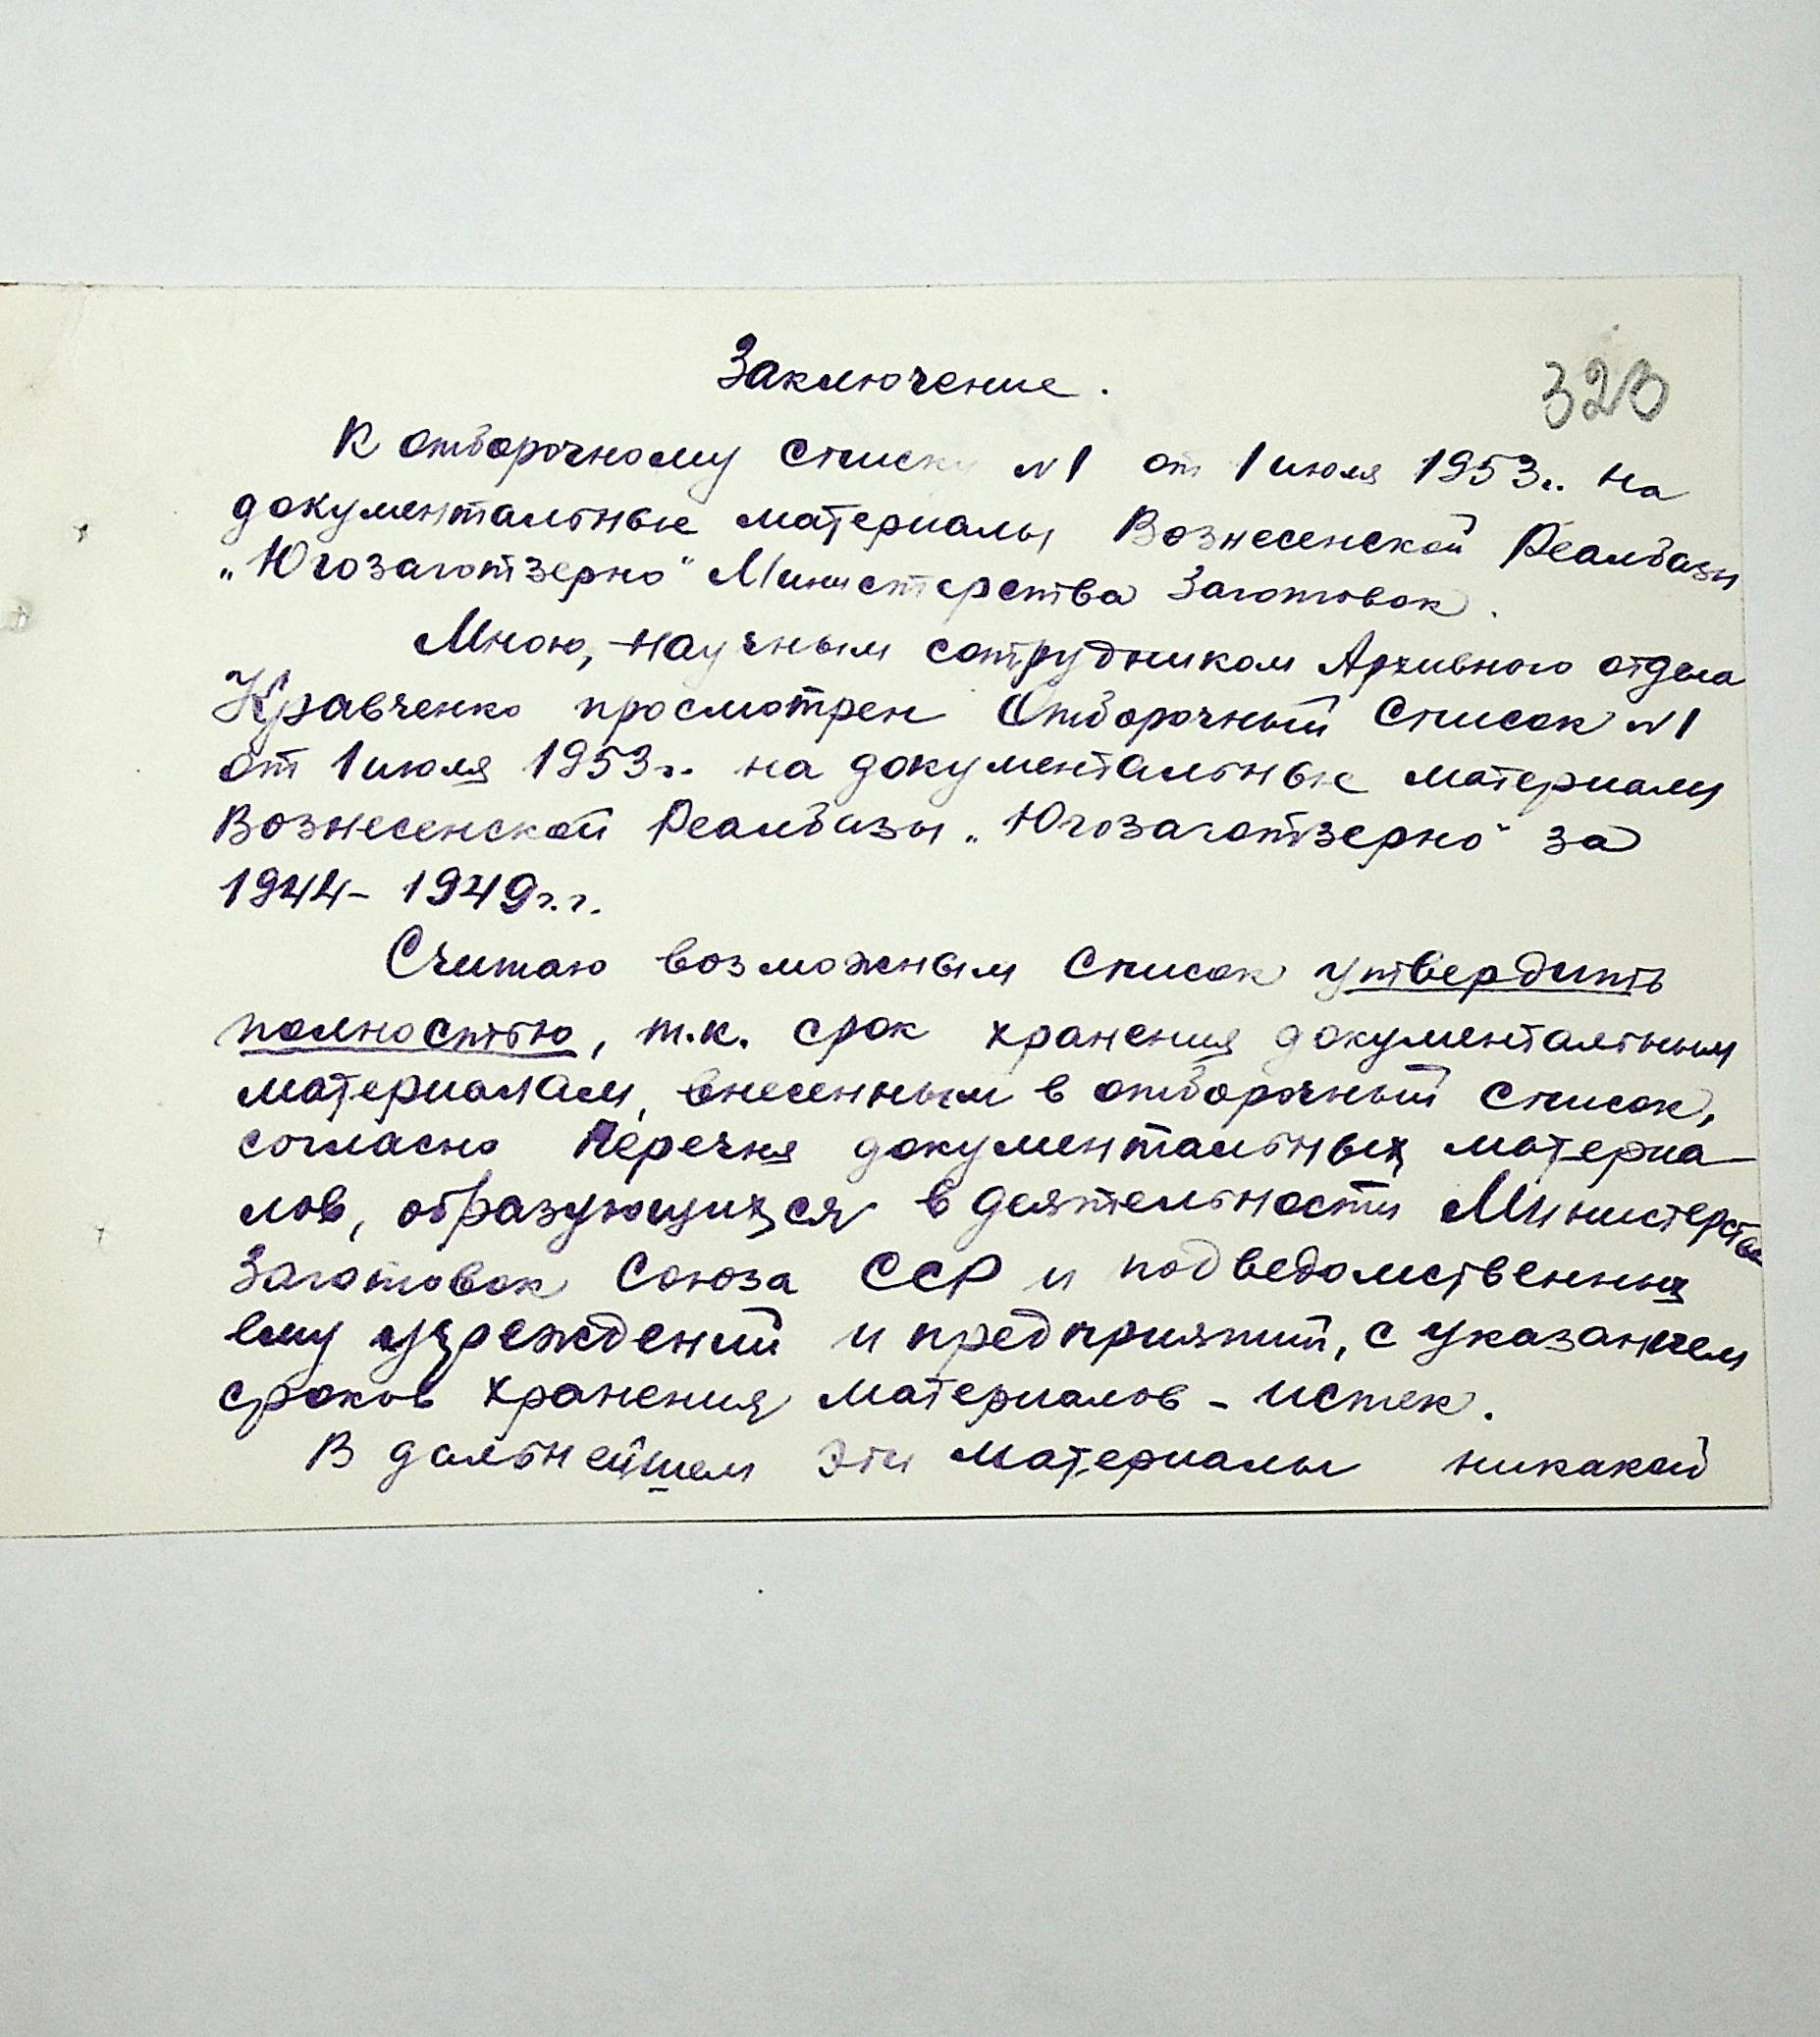 Заключение.
323
К отборочному списку №1 от 1 июля 1953г. на
документальные материалы Вознесенской Реалбазы
„Югозаготзерно" Министерства Заготовок.
Мною, научным сотрудником Архивного отдела
Кравченко просмотрен Отборочный список №1
от 1 июля 1953г. на документальные материалы
Вознесенской Реалбазы „Югозаготзерно" за
1944- 1949г.г.
Считаю возможным список утвердить
полностью, т.к. срок хранения документальным
материалам, внесенным в отборочный список,
согласно Перечня документальных материа-
лов, образующихся в деятельности Министерства
Заготовок Союза ССР и подведомственных
ему учреждений и предприятий, с указанием
сроков хранения материалов - истек.
В дальнейшем эти материалы никакой